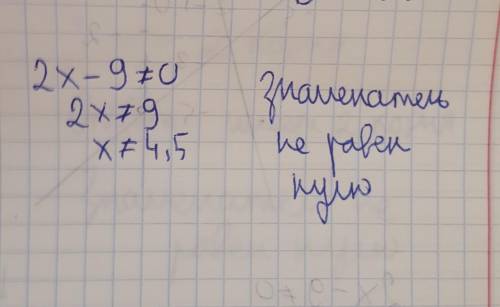 2x - 9 ≠ 0
2x ≠ 9
x ≠ 4,5
знаменатель
не равен
нулю